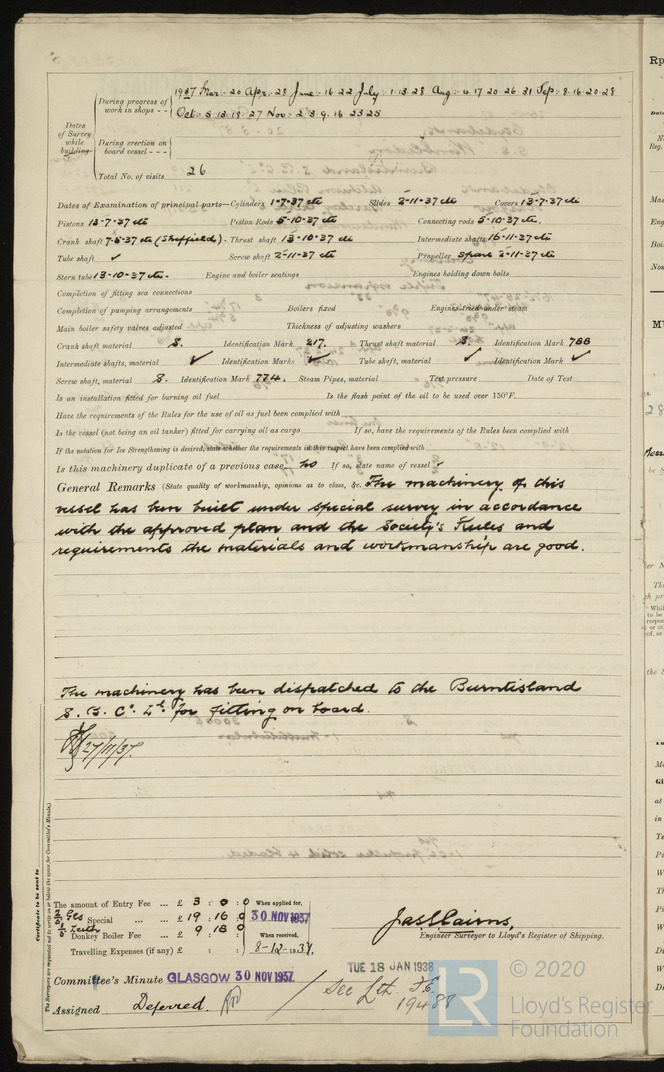 During progress of work in shops - - 1937 Mar: 20 Apr: 28 June: 16 22 July: 1 13 28 Aug: 4 17 20 26 31 Sep: 8 16 20 28
Oct: 5 13 18 27 Nov: 2 3 9 16 23 25
Dates of Survey while building
During erection on board vessel - - -
Total No. of visits 26
Dates of Examination of principal parts—Cylinders 1-7-37 etc Slides 2-11-37 etc Covers 13-7-37 etc
Pistons 13-7-37 etc Piston Rods 5-10-37 etc Connecting rods 5-10-37 etc.
Crank shaft 7-5-37 etc (Sheffield). Thrust shaft 13-10-37 etc Intermediate shafts 16-11-37 etc
Tube shaft ✓ Screw shaft 2-11-37 etc Propeller spare 2-11-37 etc
Stern tube 13-10-37 etc. Engine and boiler seatings Engines holding down bolts
Completion of fitting sea connections
Completion of pumping arrangements Boilers fixed Engines tried under steam
Main boiler safety valves adjusted Thickness of adjusting washers
Crank shaft material S. Identification Mark 217. Thrust shaft material S. Identification Mark 788
Intermediate shafts, material ✓ Identification Marks ✓ Tube shaft, material ✓ Identification Mark ✓
Screw shaft, material S. Identification Mark 774. Steam Pipes, material Test pressure Date of Test
Is an installation fitted for burning oil fuel Is the flash point of the oil to be used over 150°F.
Have the requirements of the Rules for the use of oil as fuel been complied with
Is the vessel (not being an oil tanker) fitted for carrying oil as cargo If so, have the requirements of the Rules been complied with
If the notation for Ice Strengthening is desired, state whether the requirements in this respect have been complied with
Is this machinery duplicate of a previous case no If so, state name of vessel ✓
General Remarks (State quality of workmanship, opinions as to class, &c. The machinery of this
vessel has been built under special survey in accordance
with the approved plan and the Society's Rules and
requirements the materials and workmanship are good.
The machinery has been dispatched to the Burntisland
S. B. Co. Ld. for fitting on board.
27/11/37.
Certificate to be sent to
The Surveyors are requested not to write on or below the space for Committee's Minute.
The amount of Entry Fee ... £ 3 : 0 : 0 When applied for,
2/3 Gls Special ... ... £ 19 : 16 : 0 30 NOV 1937
1/3 Leith Donkey Boiler Fee ... £ 9 : 18 : 0 When received,
Travelling Expenses (if any) £ : : 8-12-1937.
Jas Cairns,
Engineer Surveyor to Lloyd's Register of Shipping.
TUE 18 JAN 1938
Committee's Minute GLASGOW 30 NOV 1937
See Lth. F.E. 19488
Assigned Deferred.
© 2020
Lloyd's Register
Foundation
LR